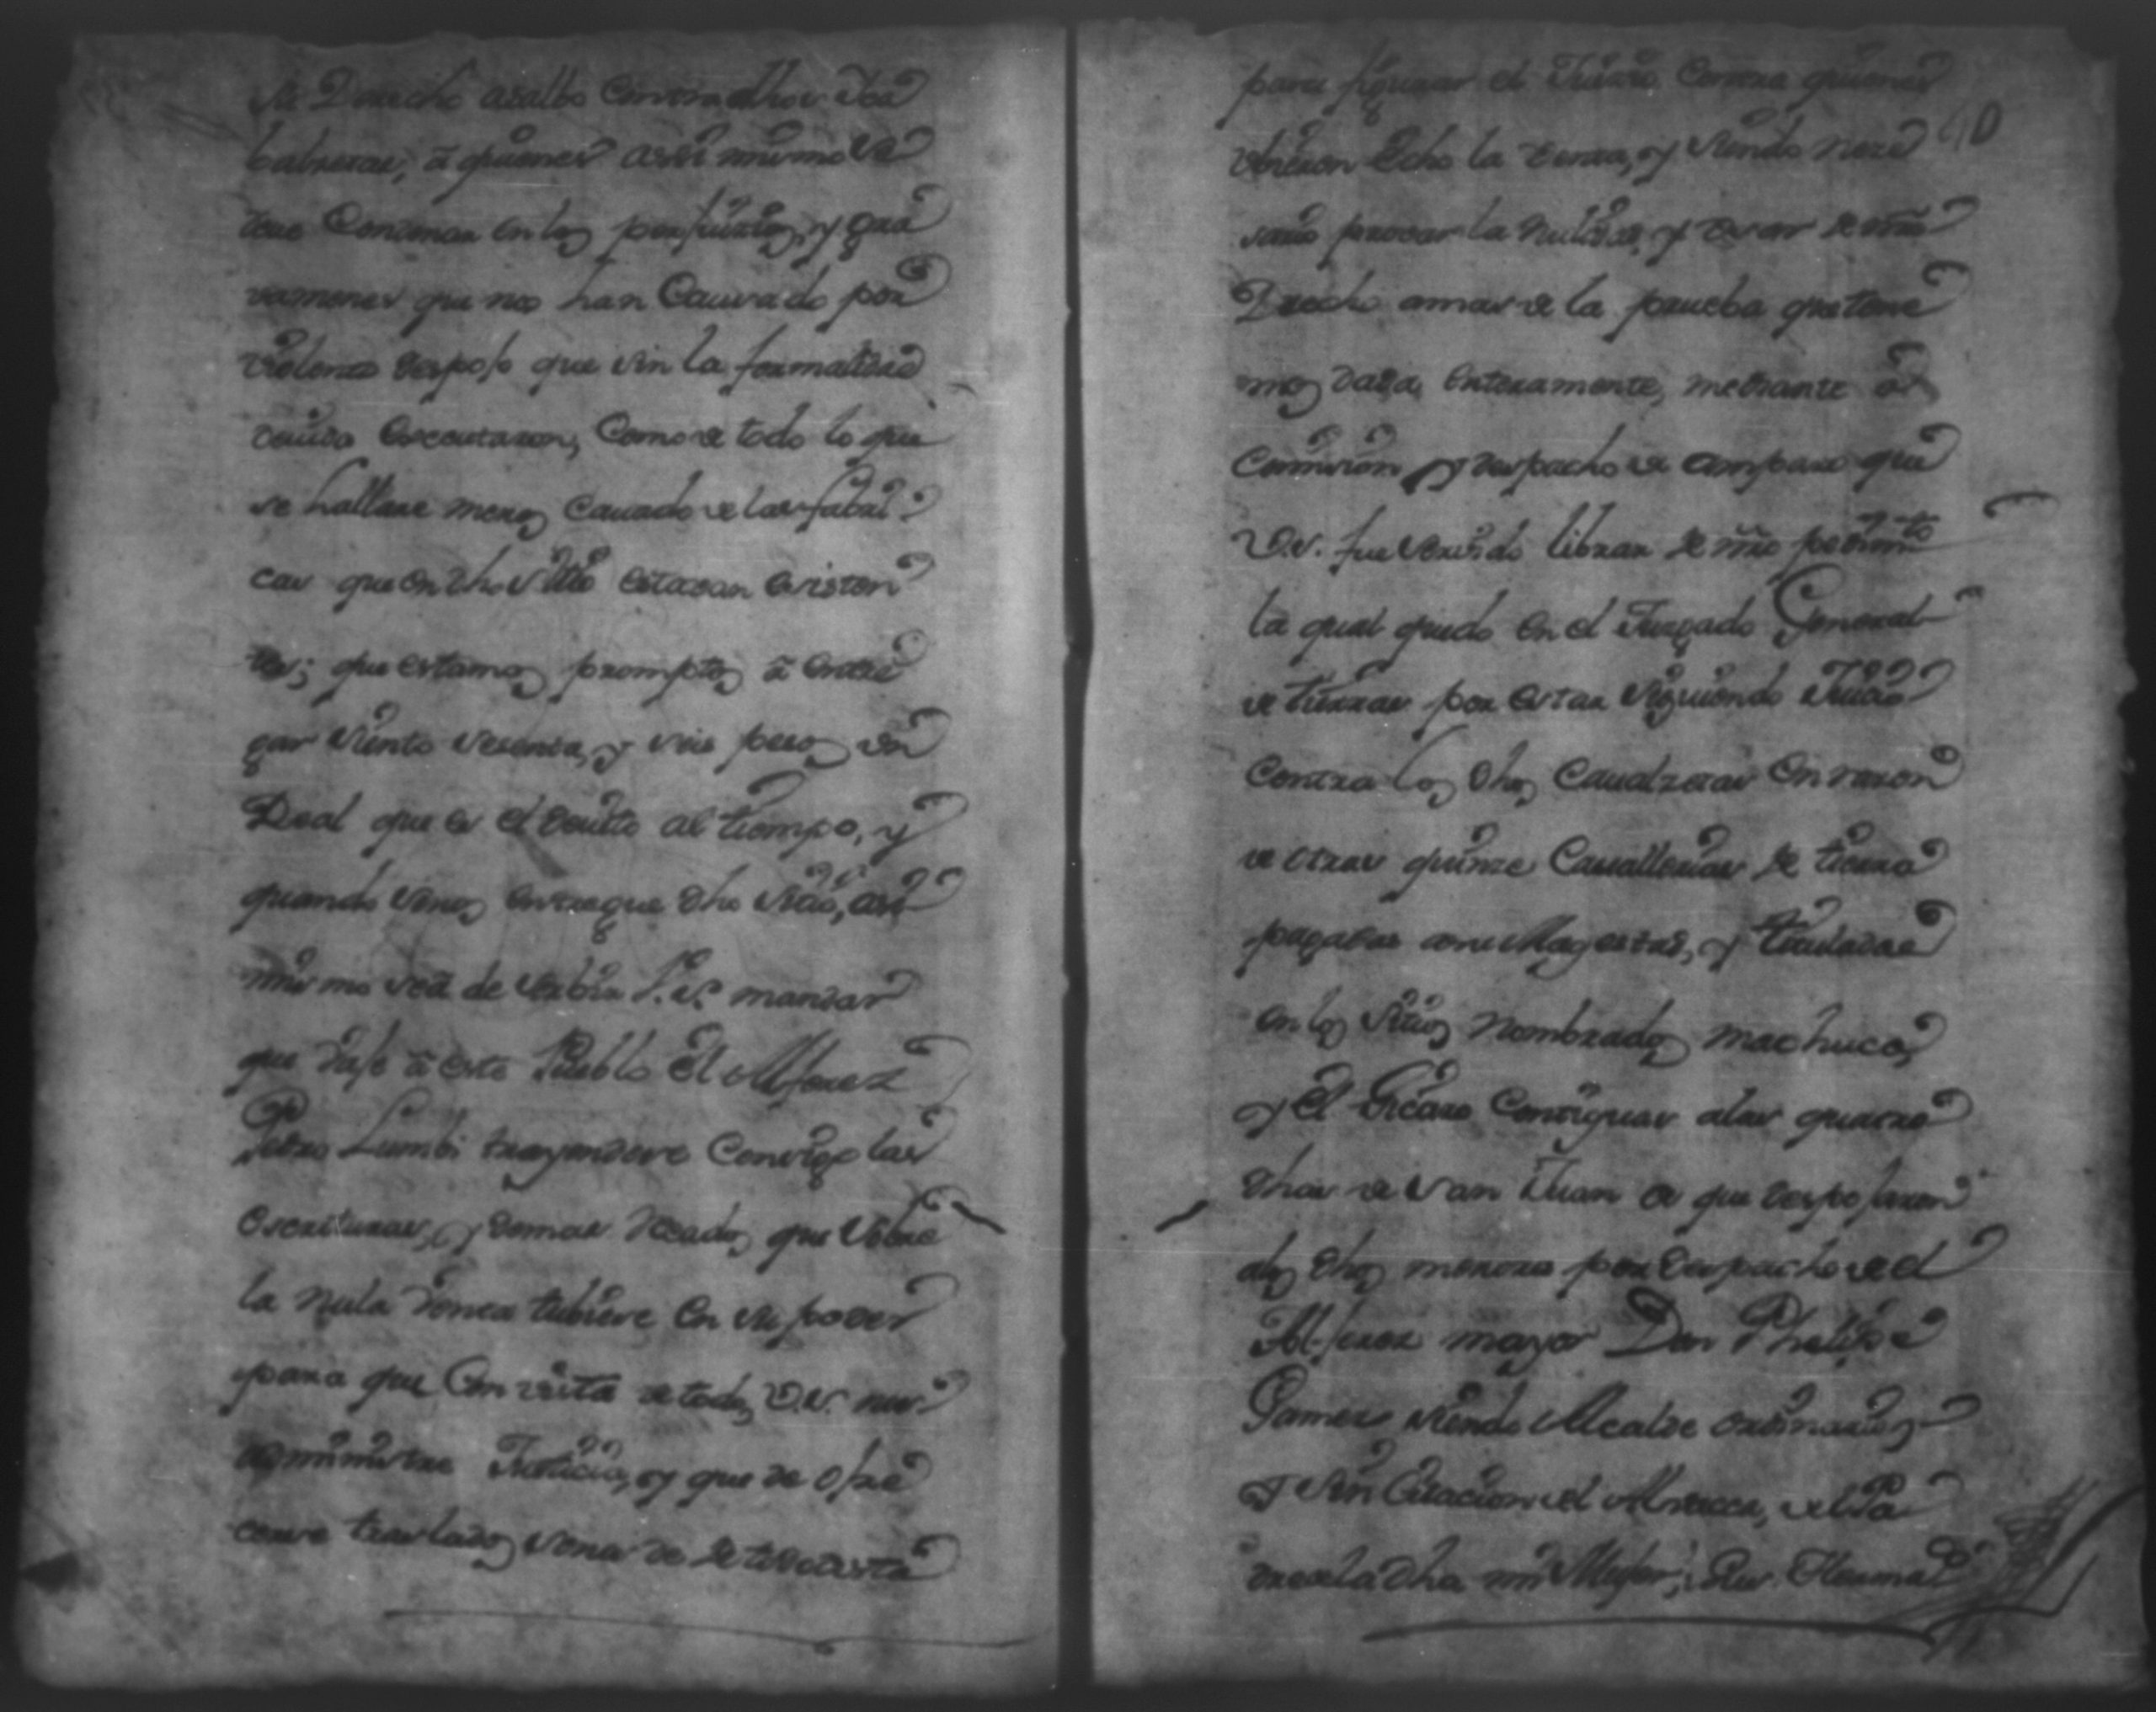 Su Derecho asalbo contra dhos Ica
balzetas, â quienes assi mismo se
deve Condenar en los perjuizios, y gra
vamenes que nos han Causado por
violento despojo que sin la formalidad
devida executaron, Como de todo lo que
se hallare menos Cavado de las fabri
cas que en dho sitio estavan existen
tes; que estamos promptos â entre
gar siento sesenta, y seis pesos un
Real que es el devito al tiempo, y
quando senos entregue dho sitio, assi
mismo se â de servir V.S. mandar
que vaje â este Pueblo el Alferez
Pedro Lumbi trayendose Consigo las
escrituras, y demas Recados que sobre
la nula venta tubiere en su poder
para que Con vista de todo V.S. nos
administre Justicia, y que se ofre
cause traslado, senos de
para figurar el Juizio Contra quienes
Ubieron Echo la venta, y siendo nece
sario provar la nulidad, y usar de nro
Derecho amas de la prueba que tene
mos dada enteramente, mediante â
Comision, y despacho de amparo que
V.S. fue servido librar de nro pedimto
la qual quedo en el Juzgado General
de tierras por estar siguiendo Juicio
Contra los dhos Caualzetas en razon
de otras quinze Cauallerias de tierra
pagadas a su Magestad, y tituladas
en los sitios nombrados machuca,
y el Contiguas alas quatro
dhas de San Juan de que despojaron
alos dhos menores por despacho de el
Alferez mayor Don Phelipe
Gamez siendo Alcalde ordinario,
y sin Citacion del Albacea, del Pa
dre de la dha mi Muger,